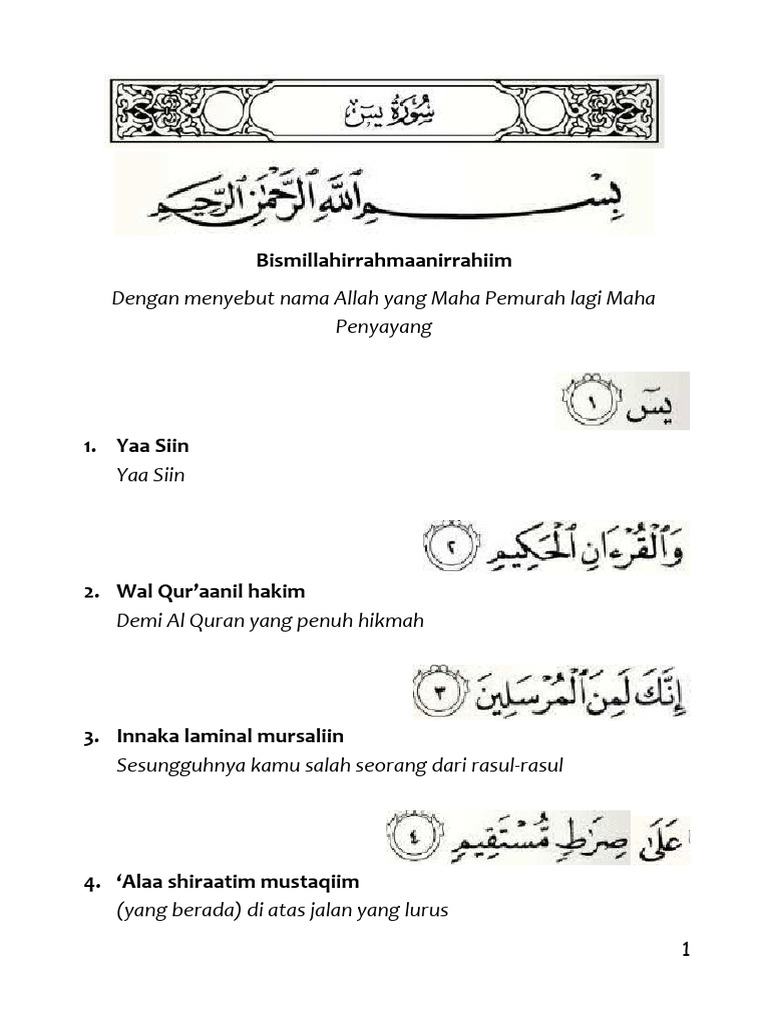 سُورَةُ يسٓ
بِسْمِ ٱللَّهِ ٱلرَّحْمَٰنِ ٱلرَّحِيمِ
Bismillahirrahmaanirrahiim
Dengan menyebut nama Allah yang Maha Pemurah lagi Maha
Penyayang
يسٓ ١
1. Yaa Siin
Yaa Siin
وَٱلْقُرْءَانِ ٱلْحَكِيمِ ٢
2. Wal Qur’aanil hakim
Demi Al Quran yang penuh hikmah
إِنَّكَ لَمِنَ ٱلْمُرْسَلِينَ ٣
3. Innaka laminal mursaliin
Sesungguhnya kamu salah seorang dari rasul-rasul
عَلَىٰ صِرَٰطٍ مُّسْتَقِيمٍ ٤
4. ‘Alaa shiraatim mustaqiim
(yang berada) di atas jalan yang lurus
1